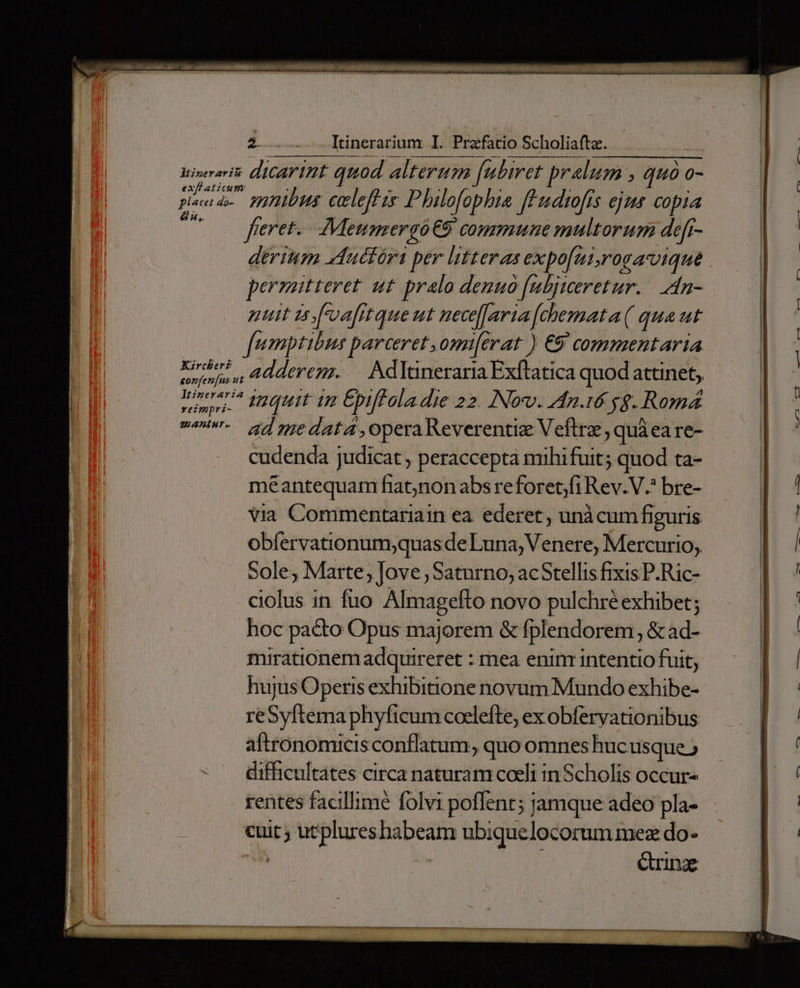 2 Itinerarium I. Præfatio Scholiaftæ.
Itinerariũ dicarint quod alterum ſubiret prælum , quò o-
exſtaticum
placet do- mnibus cœleſtis Philoſophiæ ſtudioſis ejus copia
ctis.
fieret. Meum ergò & commune multorum deſi-
derium Auctóri per litteras expoſui, rogavique
permitteret ut prælo denuò ſubjiceretur. An-
nuit is, ſvaſitque ut neceſſaria ſchemata ( quæ ut
ſumptibus parceret, omiſerat ) & commentaria
Kircheri
conſenſus ut adderem. Ad Itineraria Exſtatica quod attinet,
Itineraria inquit in Epiſtola die 22. Nov. An. 1658. Romá
reimpri-
mantur. ad me datá, opera Reverentiæ Veſtræ, quâ ea re-
cudenda judicat, peraccepta mihi fuit; quod ta-
mẽ antequam fiat, non abs re foret, ſi Rev. V.ª bre-
via Commentaria in ea ederet, unà cum figuris
obſervationum, quas de Luna, Venere, Mercurio,
Sole, Marte, Jove, Saturno, ac Stellis fixis P. Ric-
ciolus in ſuo Almageſto novo pulchrè exhibet;
hoc pacto Opus majorem & ſplendorem, & ad-
mirationem adquireret : mea enim intentio fuit,
hujus Operis exhibitione novum Mundo exhibe-
re Syſtema phyſicum cœleſte, ex obſervationibus
aſtronomicis conflatum, quo omnes hucusque
difficultates circa naturam cœli in Scholis occur-
rentes facillimè ſolvi poſſent; jamque adeo pla-
cuit, ut plures habeam ubique locorum meæ do-
ctrinæ